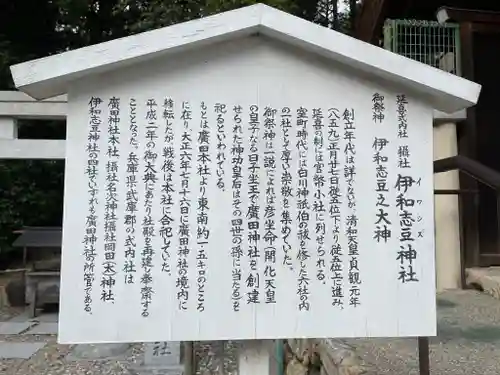 延喜式内社 摂社 伊和志豆神社
イワシズ
御祭神 伊和志豆之大神
創立年代は詳らかでないが、清和天皇・貞観元年
(八五九)正月廿七日従五位下より従五位上に進み、
延喜の制には官幣小社に列せられる。
室町時代には白川神祇伯の被を修した六社の内
の一社として厚い崇敬を集めていた。
御祭神は一説によれば彦坐命(開化天皇
の皇子なる日子坐王で廣田神社を創建
せられた神功皇后はその四世の孫に当たる)を
いわれている。
もとは廣田本社より東南約一・五キロのところ
に在り、大正六年七月十六日に廣田神社の境内に
移転したが、戦後は本社に合祀していた。
平成二年の御大典にあたり社殿を再建し奉斎する
こととなった。兵庫県武庫郡の式内社は
廣田神社本社、摂社名次神社、摂社岡田(太)神社、
伊和志豆神社の四社でいずれも廣田神社の所管である。
社